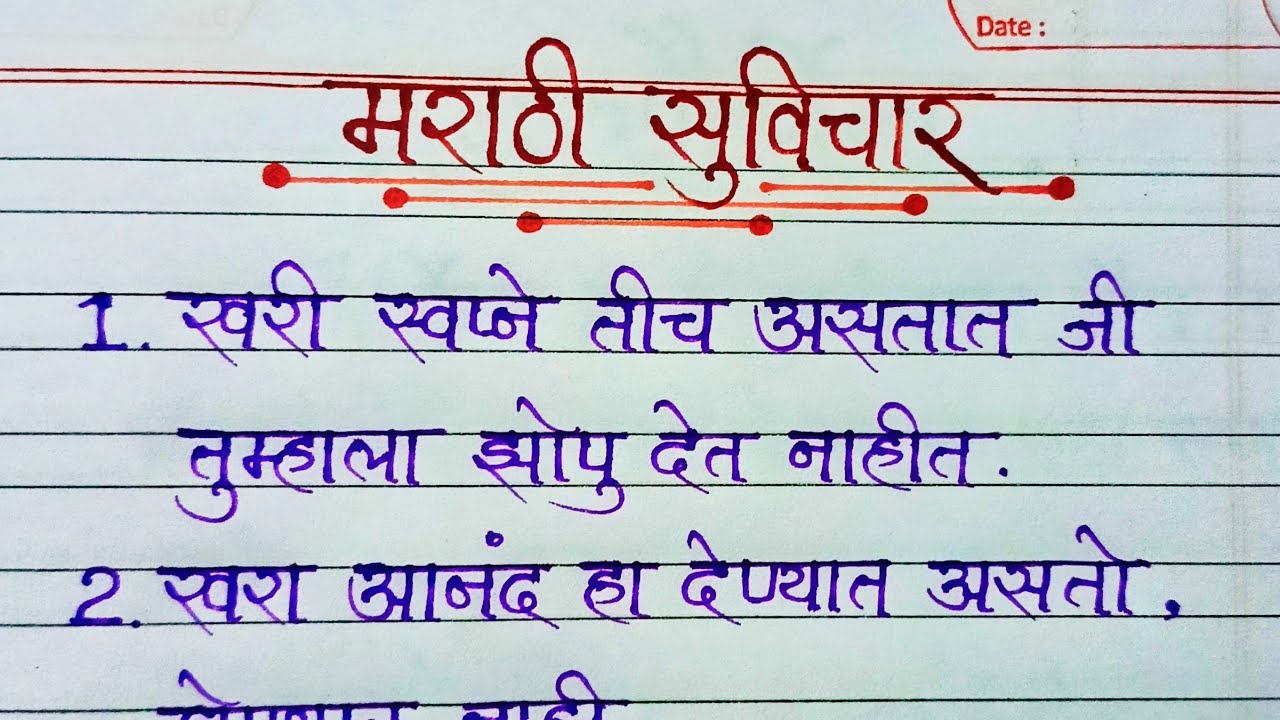 Date :
मराठी सुविचार
1. खरी स्वप्ने तीच असतात जी
तुम्हाला झोपु देत नाहीत.
2. खरा आनंद हा देण्यात असतो,
नाही